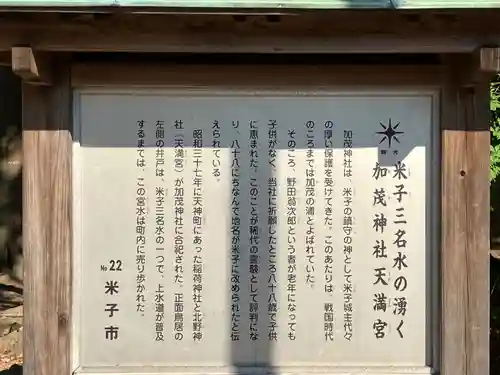 米子三名水の湧く
加茂神社天満宮
加茂神社は、米子の鎮守の神として米子城主代々
の厚い保護を受けてきた。このあたりは、戦国時代
のころまでは加茂の浦とよばれていた。
そのころ、野田翁次郎という者が老年になっても
子供がなく、当社に祈願したところ八十八歳で子供
に恵まれた。このことが稀代の霊験として評判にな
り、八十八にちなんで地名が米子に改められたと伝
えられている。
昭和三十七年に天神町にあった稲荷神社と北野神
社（天満宮）が加茂神社に合祀された。正面鳥居の
左側の井戸は、米子三名水の一つで、上水道が普及
するまでは、この宮水は町内に売り歩かれた。
No 22
米子市